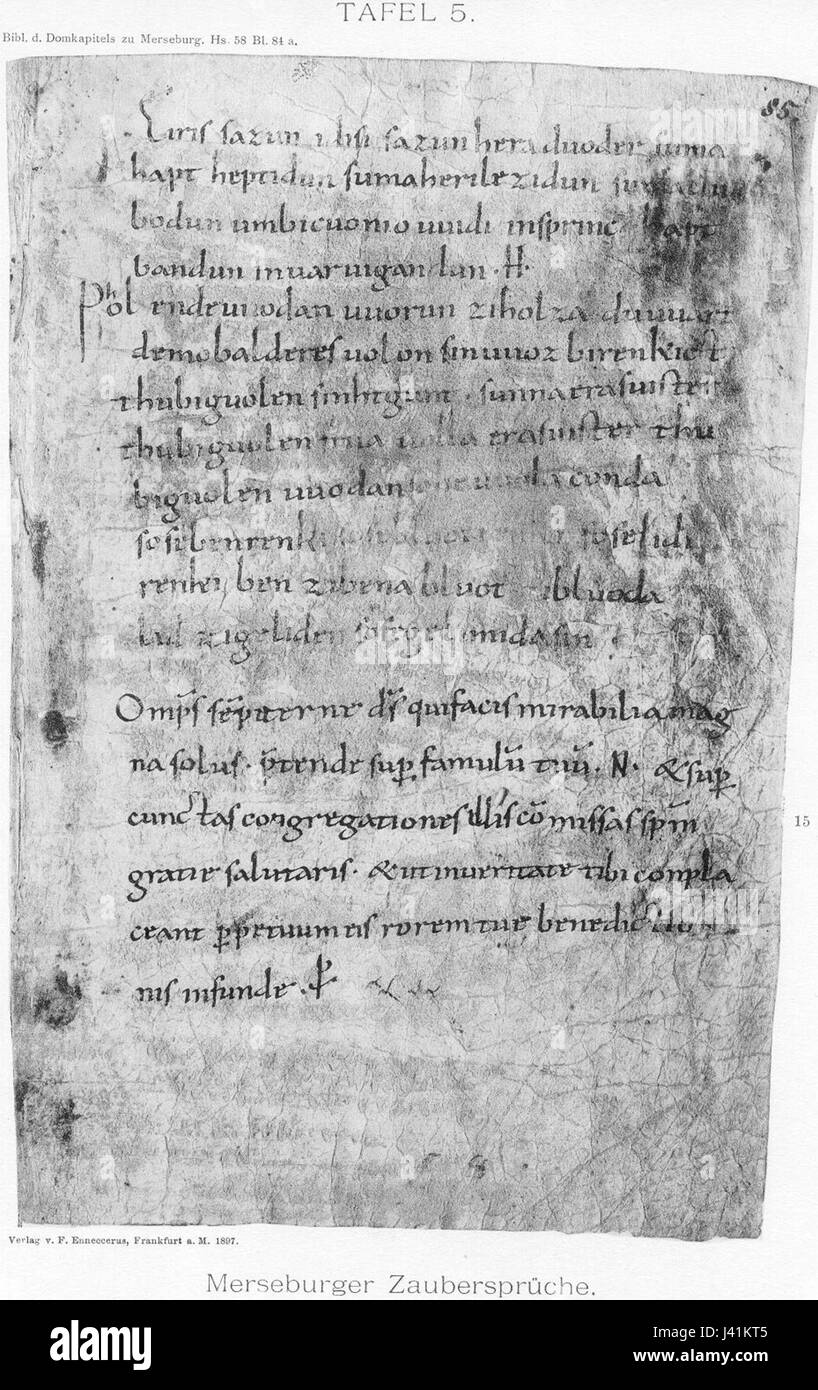 TAFEL 5.
Bibl. d. Domkapitels zu Merseburg. Hs. 58 Bl. 84 a.
85
Eiris sazun idisi sazun hera duoder suma
hapt heptidun sumaherilezidun suma
bodun umbicuonio uuidi insprinc hapt
bandun inuar uigandun · H ·
Phol endeuuodan uuorun ziholza du uuart
demobalderesuolon sinuuoz birenkict
thubiguolen sinhtgunt · sunnaerasuister
thubiguolen friia uolla erasuister thu
biguolen uuodan sohe uuola conda
sosebenrenki sosebluotrenki soselidi
renki ben zibena bluot zibluoda
lid zigeliden sosegelimidasin
Omp̄s sēpiterne d̄s quifacis mirabilia mag
na solus · p̄tende sup famulū tuū · N · & sup
cunctas congregationes illis cōmissas sp̄m
gratie salutaris · & utinueritate tibi conpla
ceant perpetuum eis rorem tue benedictio
nis infunde · P
15
Verlag v. F. Enneccerus, Frankfurt a. M. 1897.
Merseburger Zaubersprüche.
alamy
alamy
alamy
alamy
alamy
Image ID: J41KT5
www.alamy.com